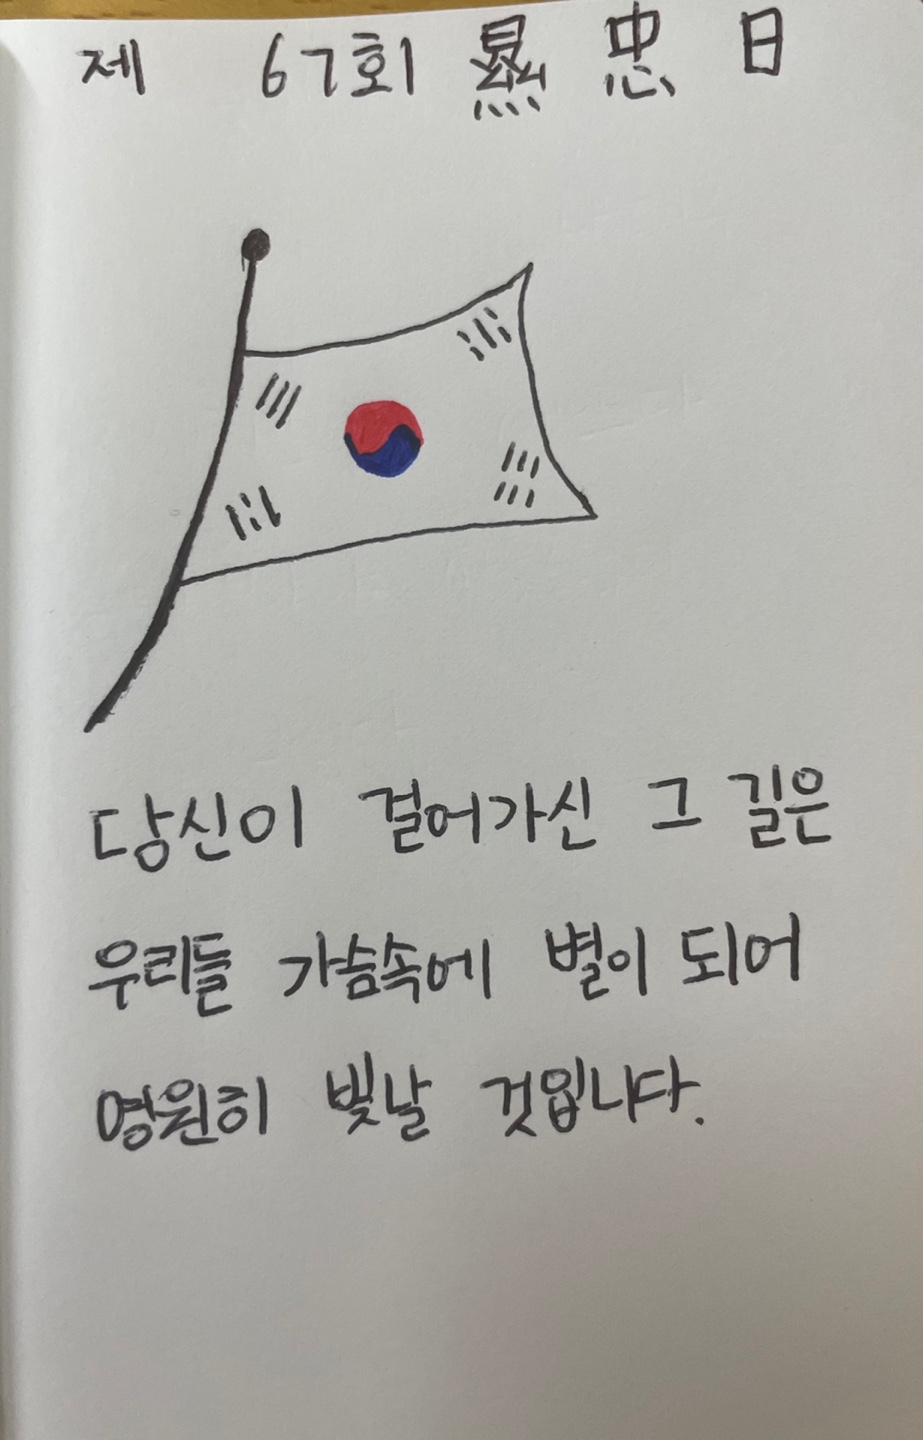 제 67회 顯忠日
당신이 걸어가신 그 길은
우리들 가슴속에 별이 되어
영원히 빛날 것입니다.